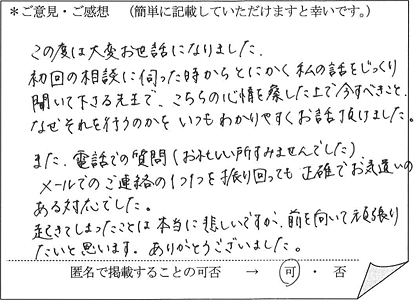 *ご意見・ご感想　(簡単に記載していただけますと幸いです。)
この度は大変お世話になりました。
初回の相談に伺った時からとにかく私の話をじっくり
聞いて下さる先生で、こちらの心情を察した上で今すべきこと、
なぜそれを行うのかをいつもわかりやすくお話頂けました。
また、電話での質問(お忙しい所すみませんでした)
メールでのご連絡の1つ1つを振り回っても正確でお気遣いの
ある対応でした。
起きてしまったことは本当に悲しいですが、前を向いて頑張り
たいと思います。ありがとうございました。
匿名で掲載することの可否　→　可　・　否